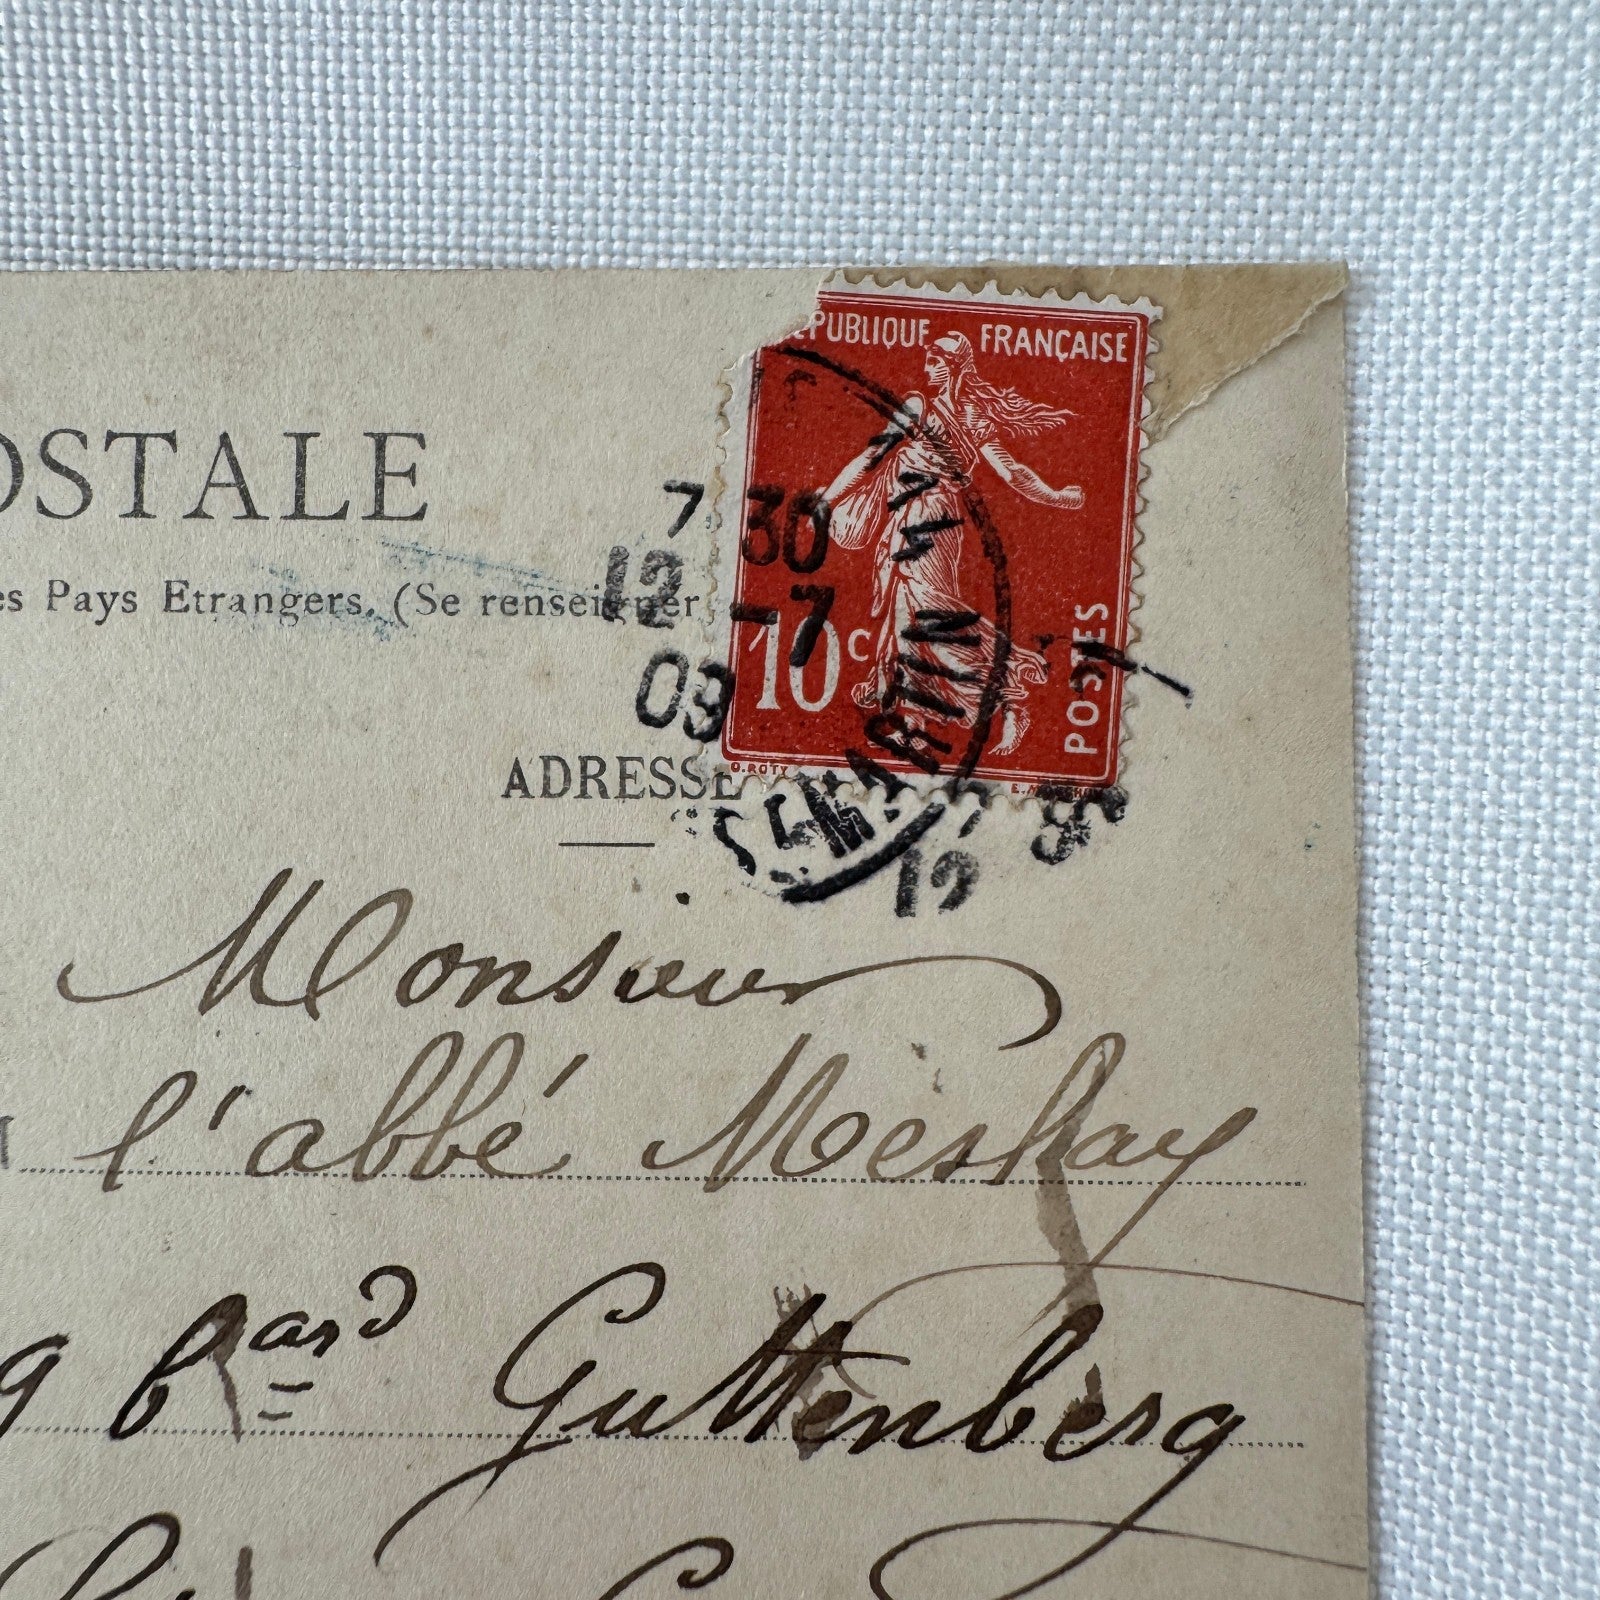 OSTALE
es Pays Etrangers. (Se renseigner
ÉPUBLIQUE FRANÇAISE
10 c
POSTES
O. ROTY
7 30
12 -7
09
MARTIN
ADRESSE
Monsieur
l'abbé Meshay
9 bard Guttenberg